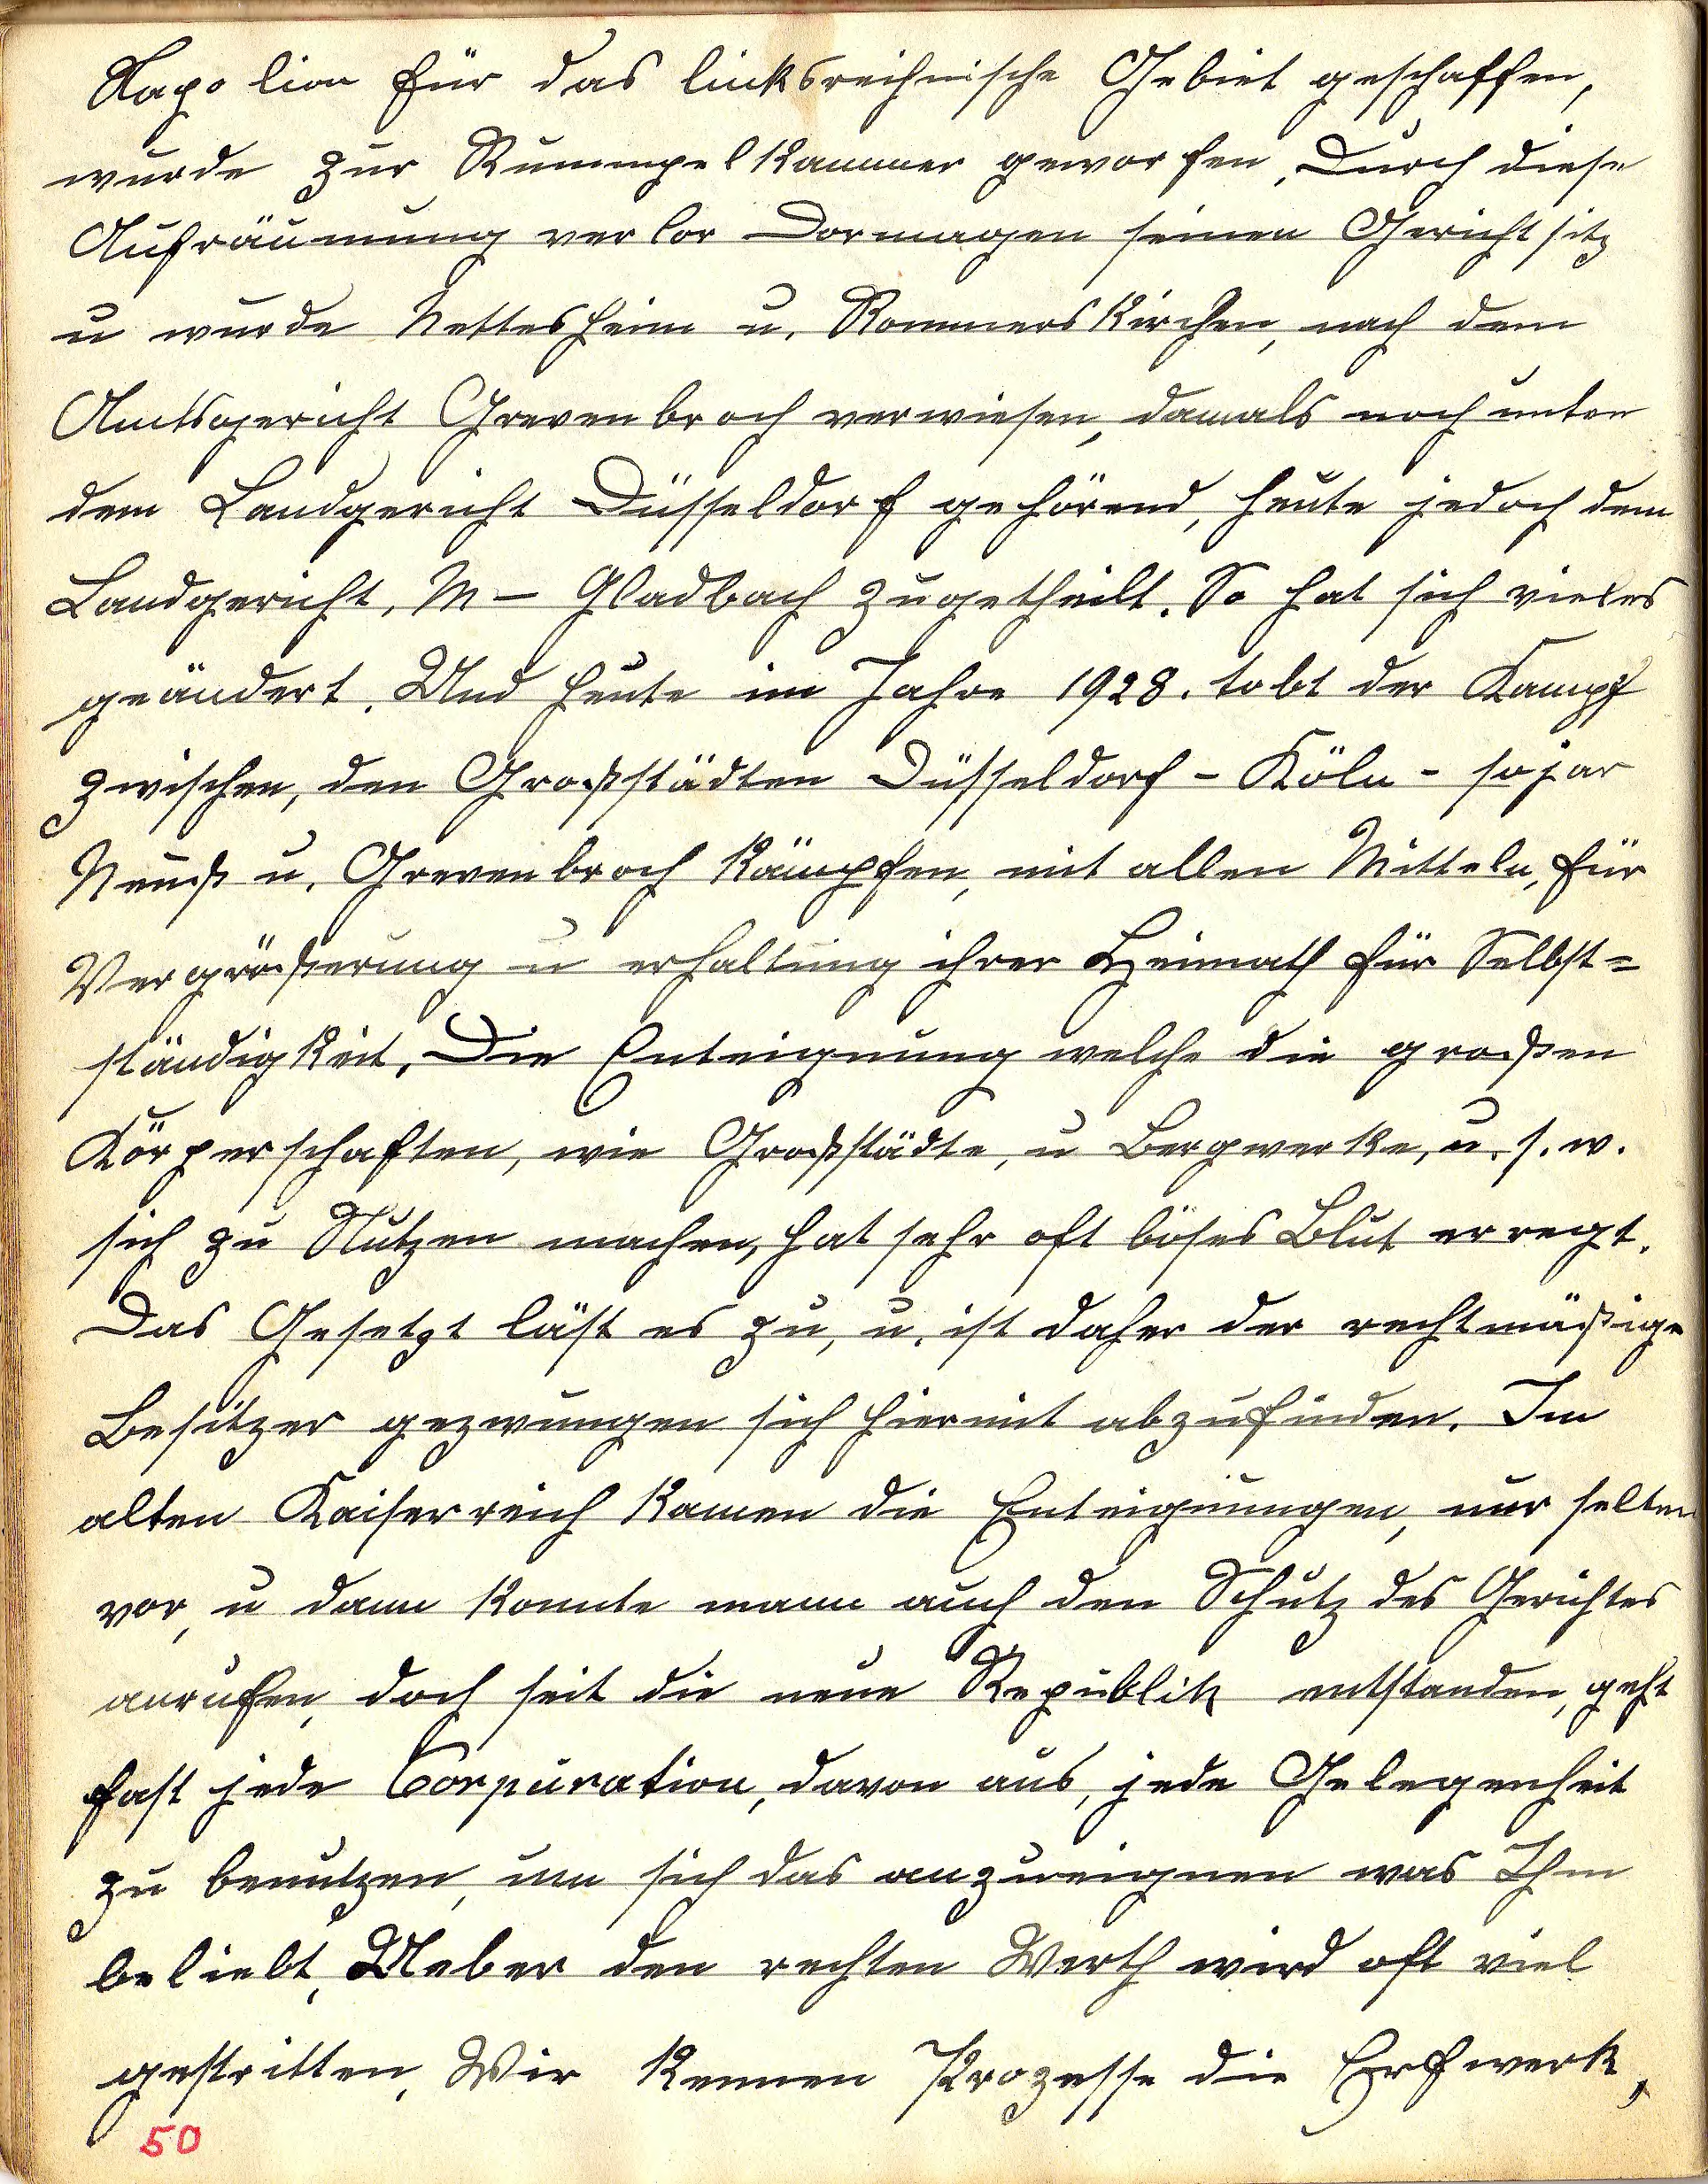 Napolion für das linksreihnische Gebiet geschaffen,
wurde zur Rummpelkammer geworfen, Durch diese
Aufräumung verlor Dormagen seinen Gerichtsitz
u wurde Nettesheim u. Rommerskirchen, nach dem
Amtsgericht Grevenbroch verwiesen, damals noch unter
dem Landgericht Düsseldorf gehörend, heute jedoch dem
Landgericht, M – Gladbach zugetheilt. So hat sich vieles
geändert. Und heute im Jahre 1928. tobt der Kampf
zwischen, den Großstädten Düsseldorf - Köln - sojar
Neuß u. Grevenbroch kämpfen, mit allen Mitteln, für
Vergrößerung u erhaltung ihrer Heimath für Selbst=
ständigkeit, Die Enteignung welche die großen
Körperschaften, wie Großstädte, u Bergwerke, u. s. w.
sich zu Nutzen machen, hat sehr oft böses Blut erregt.
Das Gesetzt läst es zu, u. ist daher der rechtmäßige
Besitzer gezwungen sich hiermit abzufinden. Im
alten Kaiserreich kamen die Enteignungen, nur selten
vor, u dann konnte mann auch den Schutz des Gerichtes
anrufen, doch seit die neue Republik entstanden, geht
fast jede Corpuration, davon aus, jede Gelegenheit
zu benutzen, um sich das anzueignen was Ihm
beliebt, Ueber den rechten Werth wird oft viel
gestritten, Wir kennen Prozesse die Erfwerk,
50